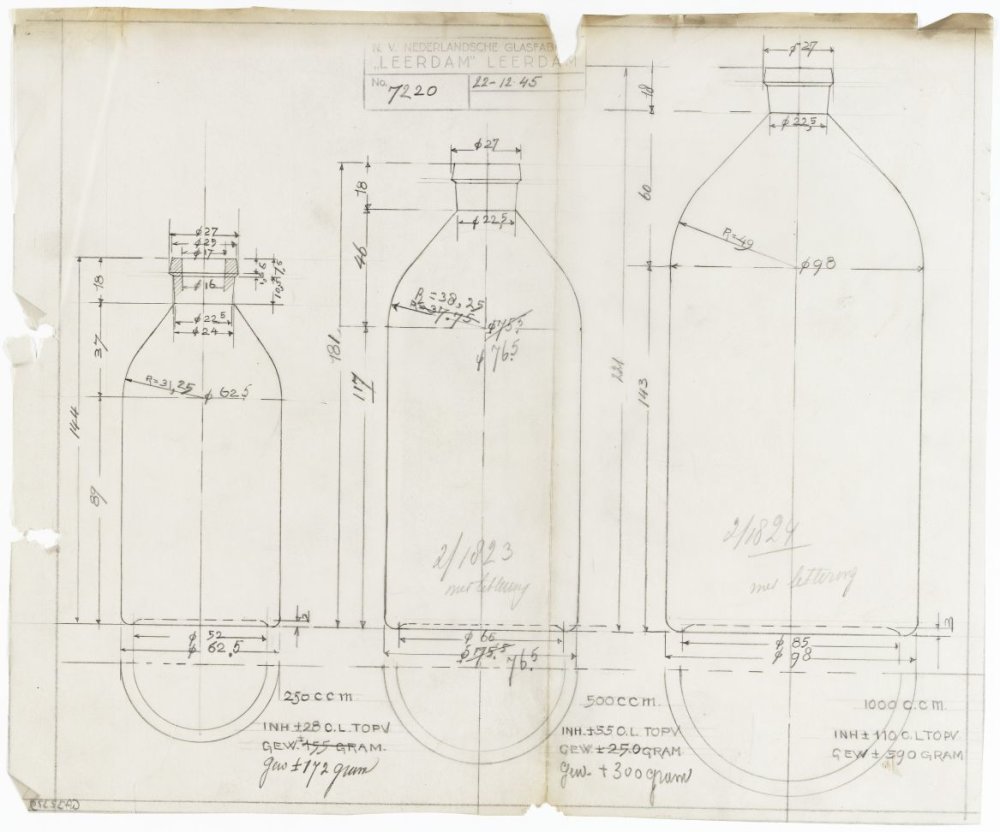 N. V. NEDERLANDSCHE GLASFAB
„LEERDAM" LEERDAM
No. 7220
22-12-45
ϕ27
ϕ25
ϕ17
ϕ16
18
ϕ22⁵
ϕ24
37
R=31,25
ϕ 62⁵
144
89
ϕ 52
ϕ 62,5
250 c c m
INH ±28 C.L. TOPV
GEW. ±155 GRAM.
Gew ±172 gram
ϕ27
18
ϕ 22,5
46
R=38,25
R=37.75
ϕ75⁵
ϕ 76⁵
181
117
2/1823
met lettering
ϕ 66
ϕ75.⁵
76⁵
500 C C M.
INH ±55 C.L. TOPV
GEW ±250 GRAM
Gew. ±300 gram
ϕ 27
18
ϕ 22,5
60
R=49
ϕ98
221
143
2/1824
met lettering
3
ϕ 85
ϕ 98
1000 C.C.M.
INH ± 110 C.L TOPV
GEW ± 590 GRAM